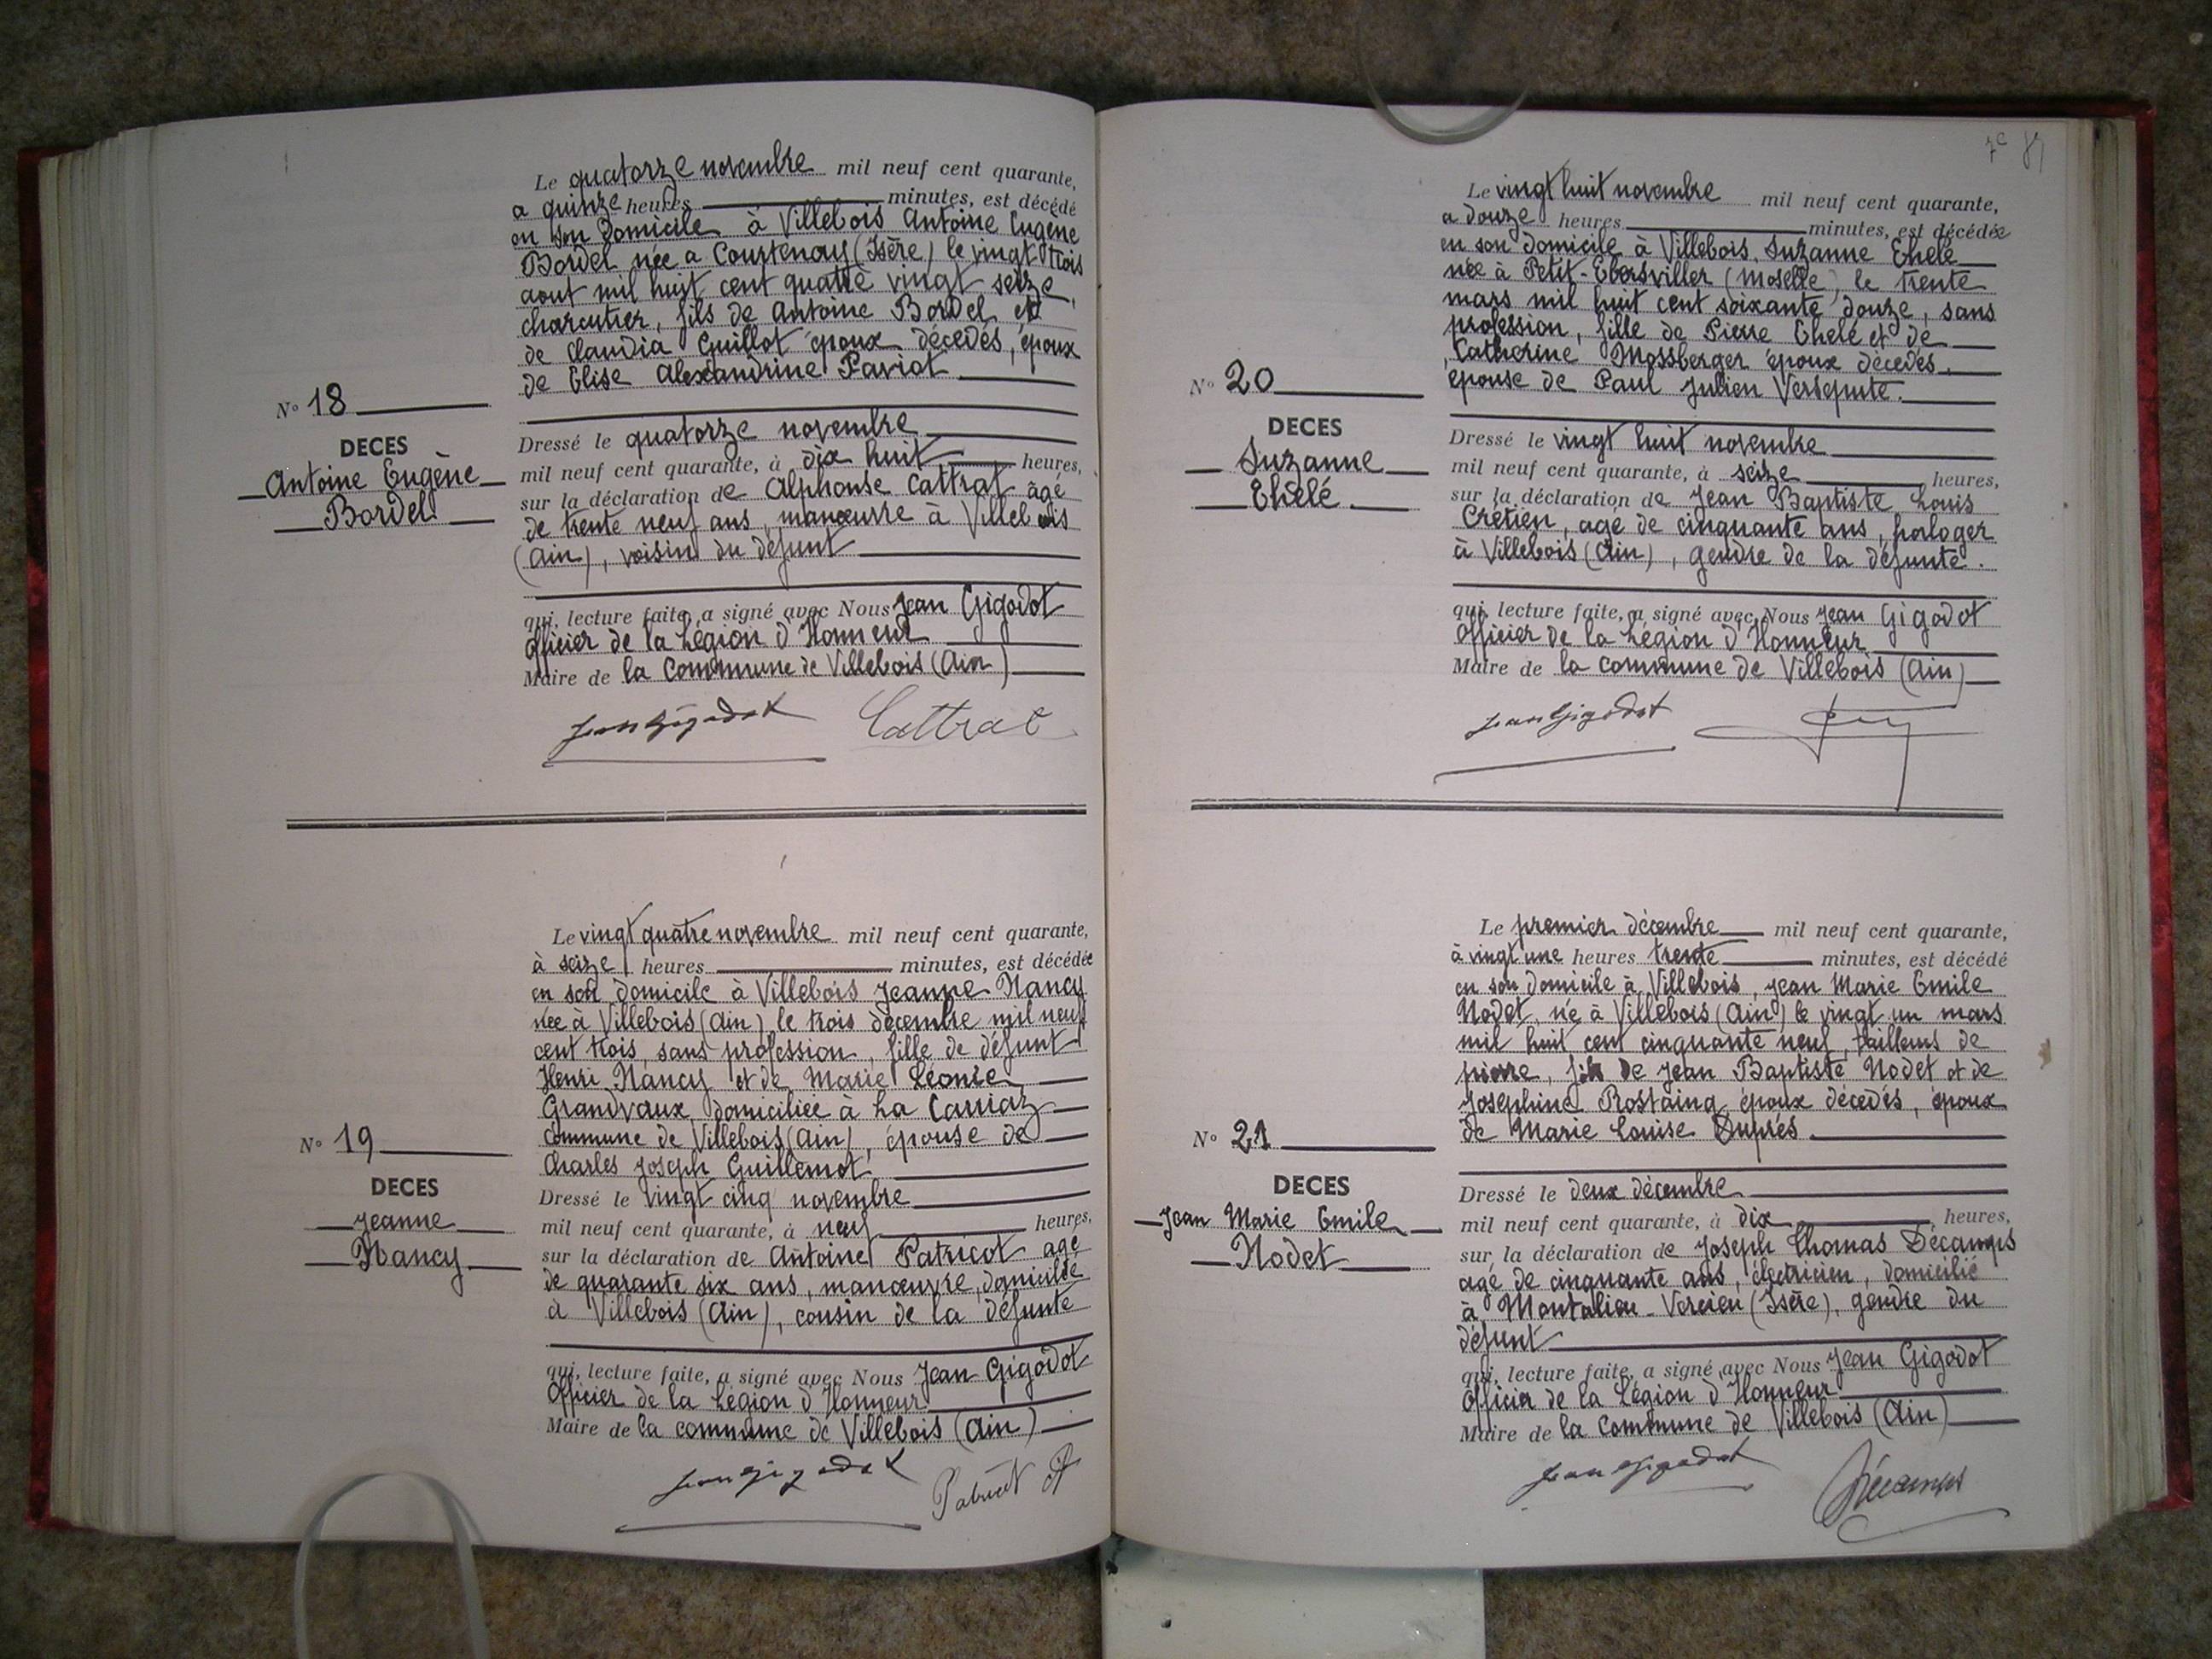 Le quatorze novembre mil neuf cent quarante,
a quinze heures minutes, est décédé
en son domicile à Villebois Antoine Eugène
Bordel née a Courtenay (Isère) le vingt trois
aout mil huit cent quatre vingt seize,
charcutier, fils de Antoine Bordel et
de Claudia Guillot époux décédés, époux
de Elise Alexandrine Paviot
N° 18
DECES
Antoine Eugène
Bordel
Dressé le quatorze novembre
mil neuf cent quarante, à dix huit heures,
sur la déclaration de Alphonse Cattrat âgé
de trente neuf ans, manœuvre à Villebois
(Ain), voisin du défunt
qui, lecture faite, a signé avec Nous Jean Gigodot
Officier de la Légion d'Honneur
Maire de la Commune de Villebois (Ain)
Jean Gigodot Cattrat
Le vingt quatre novembre mil neuf cent quarante,
à seize heures minutes, est décédée
en son domicile à Villebois Jeanne Nancy
née à Villebois (Ain) le trois décembre mil neuf
cent trois, sans profession, fille de défunt
Henri Nancy et de Marie Léonie
Grandvaux domiciliée à La Carriaz
commune de Villebois (Ain), épouse de
Charles Joseph Guillemot
N° 19
DECES
Jeanne
Nancy
Dressé le vingt cinq novembre
mil neuf cent quarante, à neuf heures,
sur la déclaration de Antoine Patricot agé
de quarante six ans, manœuvre, domicilié
à Villebois (Ain), cousin de la défunte
qui, lecture faite, a signé avec Nous Jean Gigodot
Officier de la Légion d'Honneur
Maire de la commune de Villebois (Ain)
Jean Gigodot Patricot
Le vingt huit novembre mil neuf cent quarante,
a douze heures minutes, est décédée
en son domicile à Villebois, Suzanne Ehelé
née à Petit-Ebersviller (Moselle) le trente
mars mil huit cent soixante douze, sans
profession, fille de Pierre Ehelé et de
Catherine Mossberger époux décédés.
épouse de Paul Julien Versepute.
N° 20
DECES
Suzanne
Ehelé
Dressé le vingt huit novembre
mil neuf cent quarante, à seize heures,
sur la déclaration de Jean Baptiste Louis
Crétien, agé de cinquante ans, horloger
à Villebois (Ain), gendre de la défunte.
qui, lecture faite, a signé avec Nous Jean Gigodot
Officier de la Légion d'Honneur
Maire de la commune de Villebois (Ain)
Jean Gigodot
Le premier décembre mil neuf cent quarante,
à vingt une heures trente minutes, est décédé
en son domicile à Villebois, Jean Marie Emile
Nodet, né à Villebois (Ain) le vingt un mars
mil huit cent cinquante neuf, tailleurs de
pierre, fils de Jean Baptiste Nodet et de
Joséphine Rostaing époux décédés, époux
de Marie Louise Duprés.
N° 21
DECES
Jean Marie Emile
Nodet
Dressé le deux décembre
mil neuf cent quarante, à dix heures,
sur la déclaration de Joseph Thomas Décamps
agé de cinquante ans, électricien, domicilié
à Montalieu-Vercieu (Isère), gendre du
défunt
qui, lecture faite, a signé avec Nous Jean Gigodot
Officier de la Légion d'Honneur
Maire de la Commune de Villebois (Ain)
Jean Gigodot Décamps